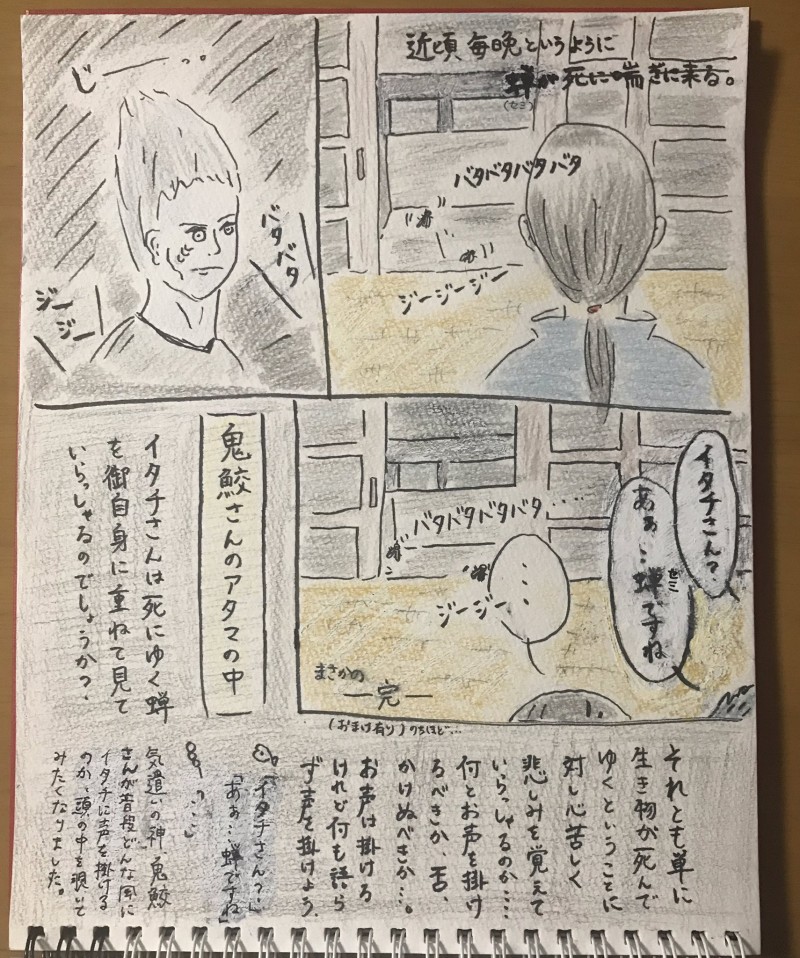 近頃毎晩というように
蝉が死に喘ぎに来る。
(セミ)
バタバタバタバタ
ジージージー
じーーっ。
バタバタ
ジー
ジー
イタチさん?
あぁ…蝉ですね
セミ
バタバタバタバタ……
…
ジージー
まさかの
―完―
(おまけ有り)のちほど…
鬼鮫さんのアタマの中
イタチさんは死にゆく蝉
を御自身に重ねて見て
いらっしゃるのでしょうか?
それとも単に
生き物が死んで
ゆくということに
対し心苦しく
悲しみを覚えて
いらっしゃるのか…
何とお声を掛け
るべきか、否、
かけぬべきか…。
お声は掛ける
けれど何も語ら
ず声を掛けよう、
「イタチさん?」
「あぁ…蝉ですね」
気遣いの神・鬼鮫
さんが普段どんな風に
イタチに声を掛ける
のか、頭の中を覗いて
みたくなりました。